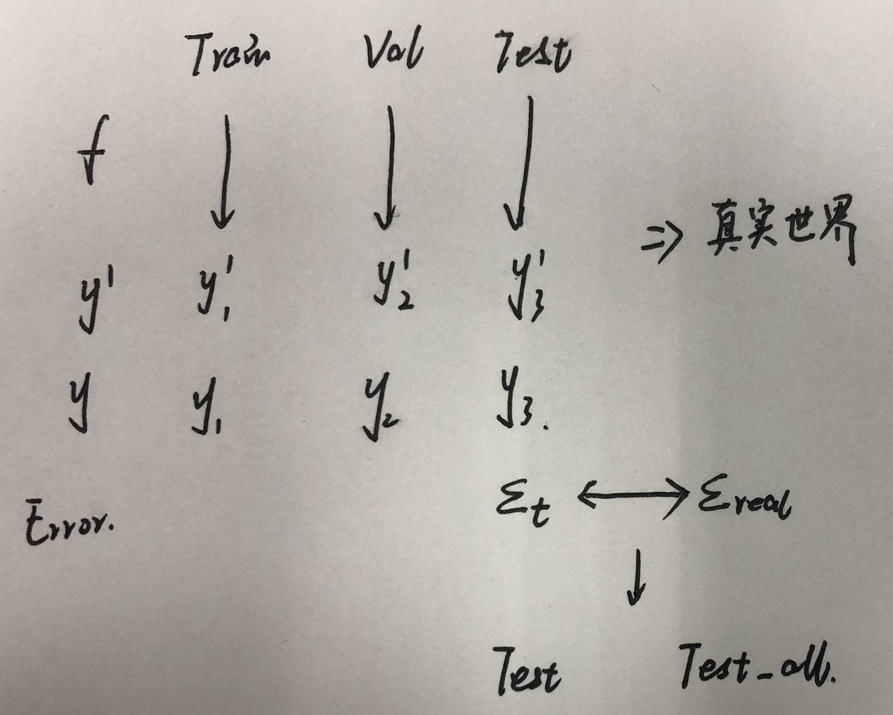 Train Val Test
f
⇒ 真实世界
y' y'₁ y'₂ y'₃
y y₁ y₂ y₃.
Error. Σt ↔ Σreal
↓
Test Test_all.